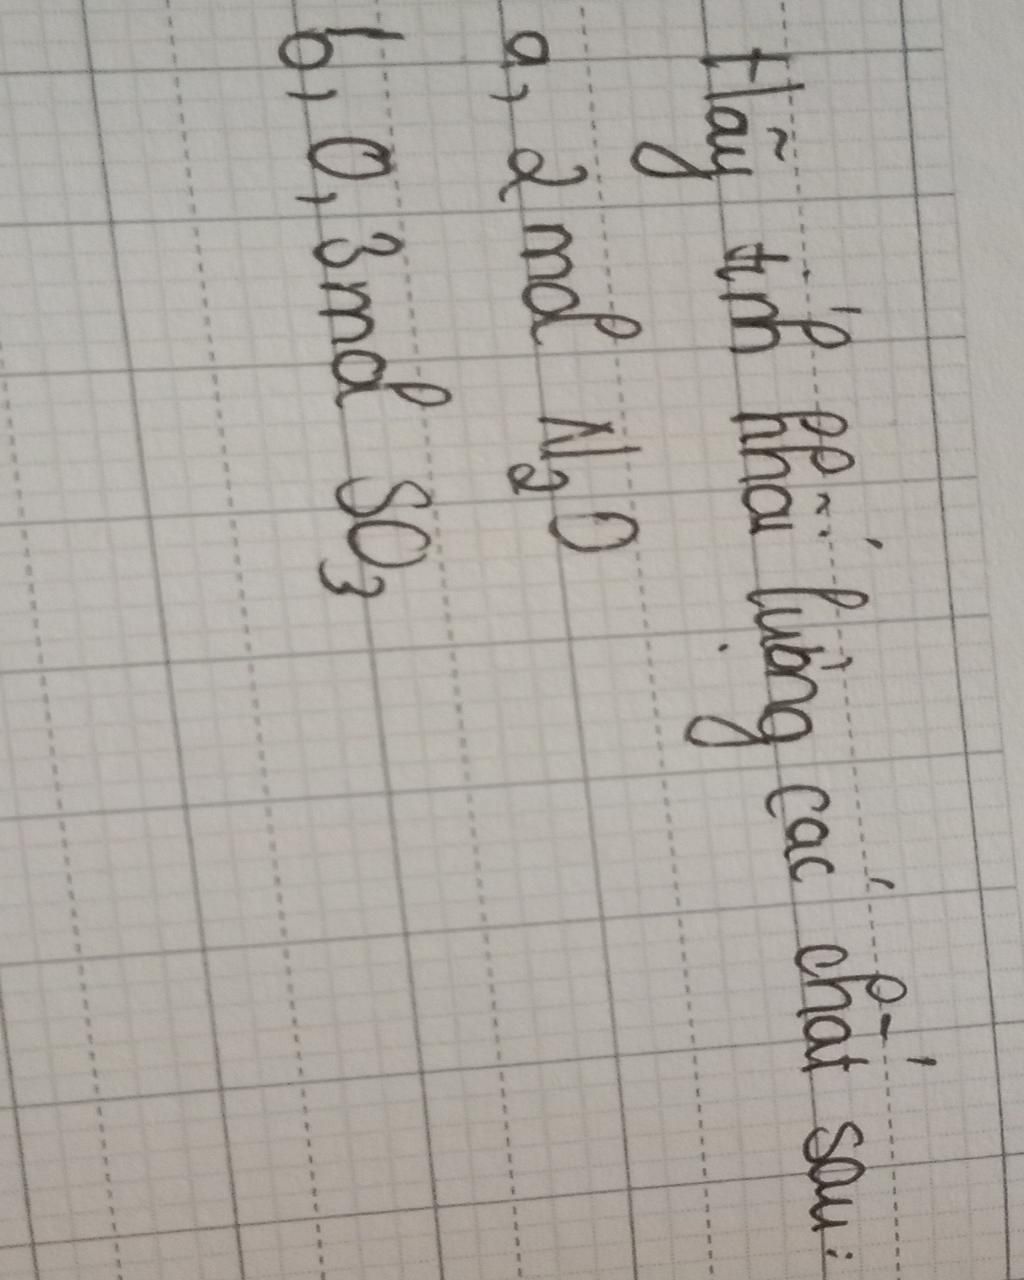 Hãy tính khối lượng các chất sau:
a, 2 mol N₂O
b, 0,3 mol SO₃